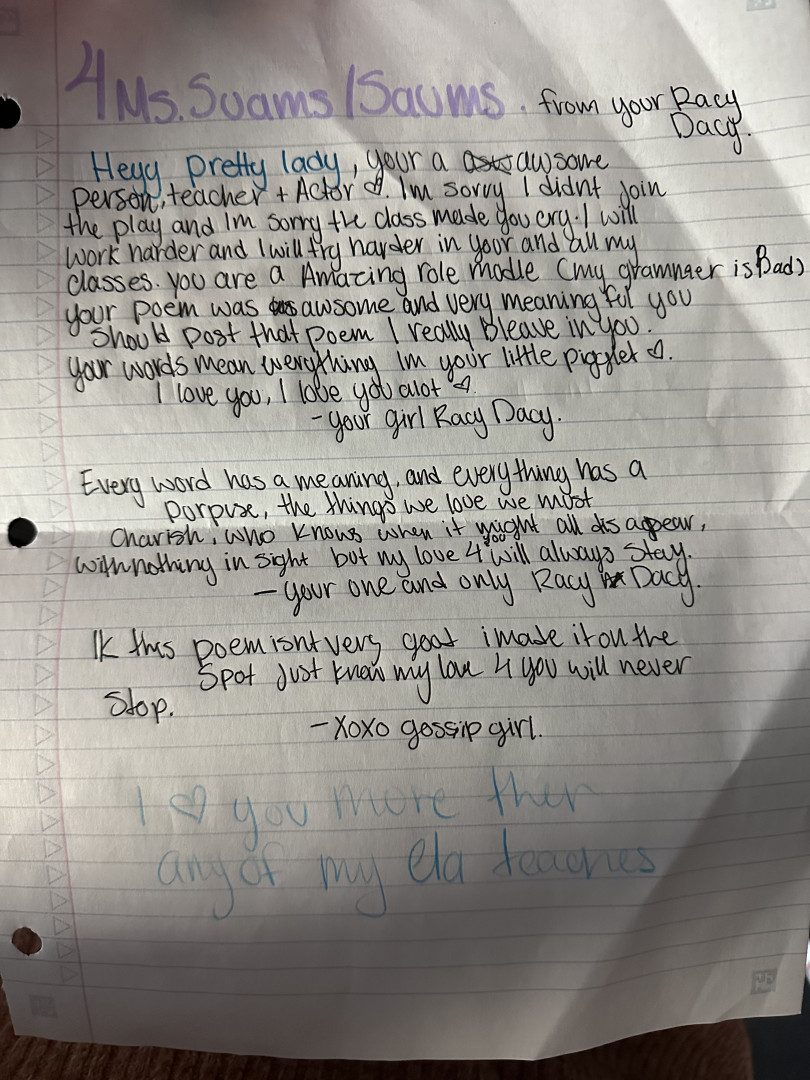 4 Ms. Suams/Saums. from your Racy
Dacy.
Heyy pretty lady, your a awsome
person, teacher + Actor ♡. Im sorry I didnt join
the play and Im sorry the class made you cry. I will
work harder and I will try harder in your and all my
classes. you are a Amazing role modle (my grammaer is Bad)
your poem was awsome and very meaning ful you
should post that poem I really Bleave in you.
your words mean everything Im your little pigglet ♡.
I love you, I love you alot ♡.
- your girl Racy Dacy.
Every word has a meaning, and everything has a
porpuse, the things we love we must
charish, who knows when it might all disappear,
with nothing in sight but my love 4 you will always stay.
- your one and only Racy Dacy.
Ik this poem isnt very good i made it on the
Spot Just know my love 4 you will never
Stop.
- XoXo gossip girl.
I ♡ you more then
any of my ela teaches